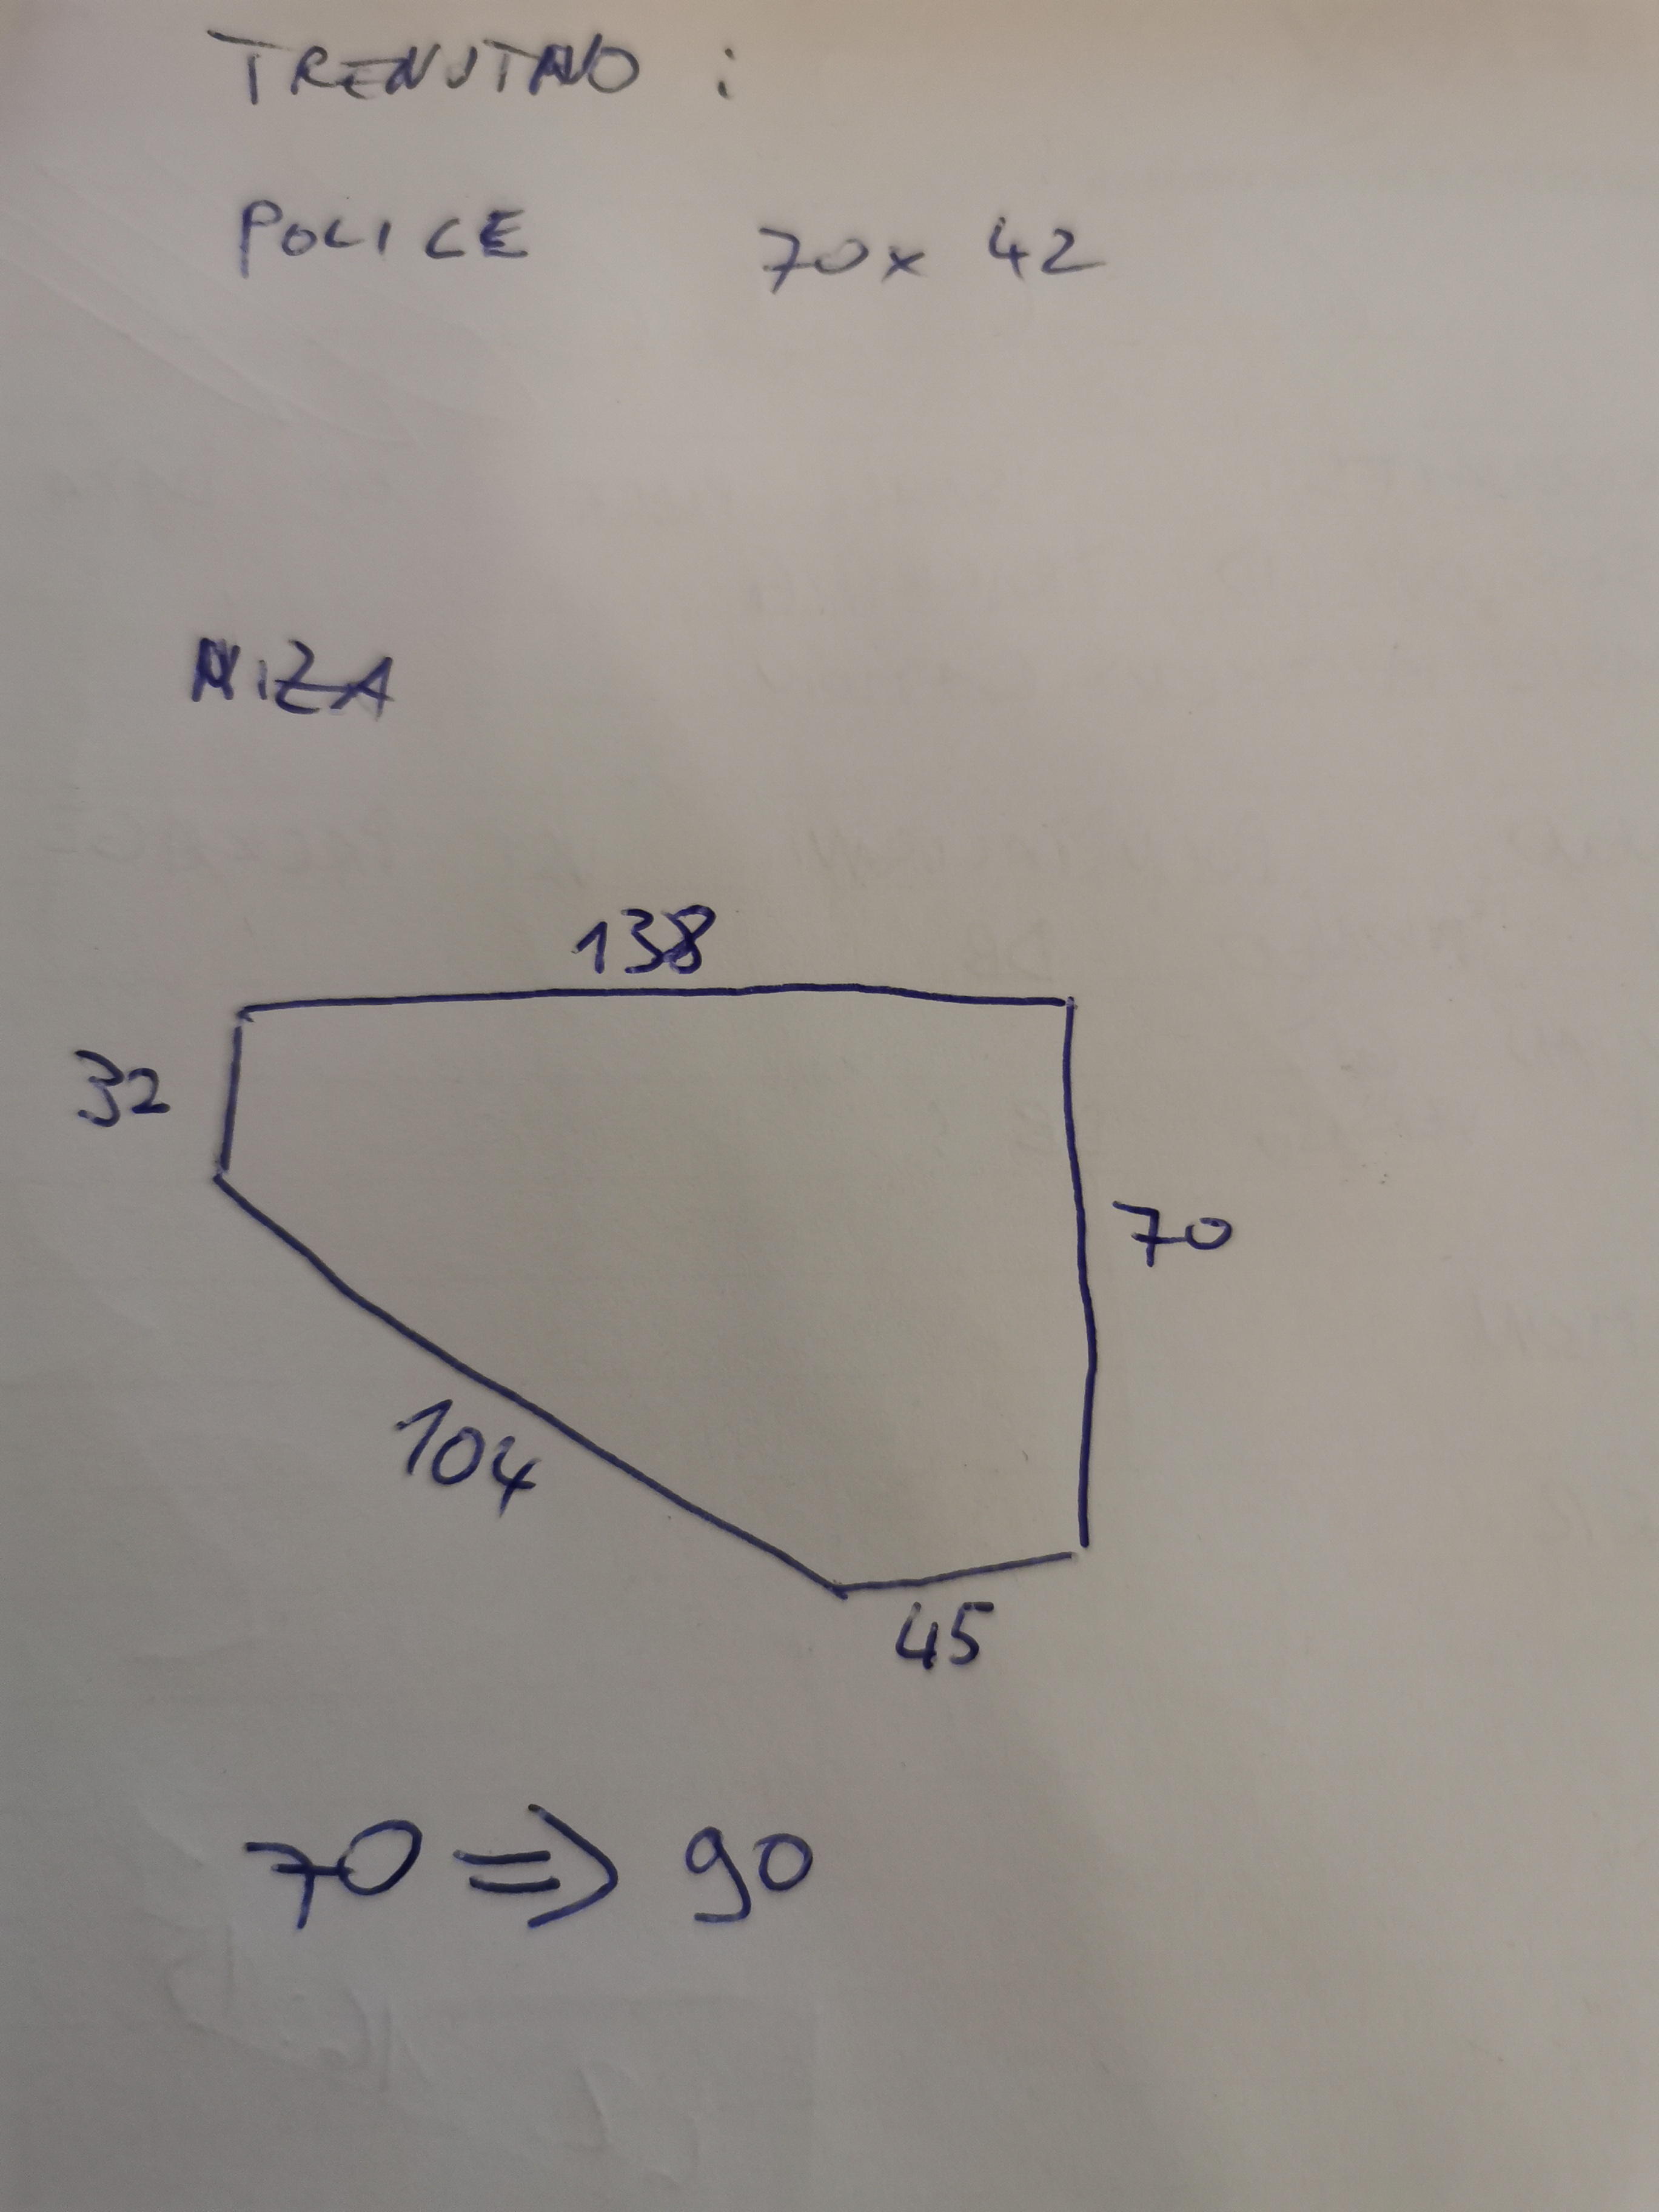 TRENUTNO :
POLICE 70x 42
MIZA
138
32
70
104
45
70 => 90